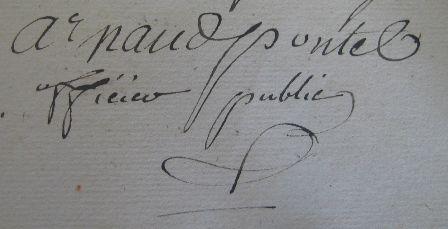 arnaud pontel
officier public